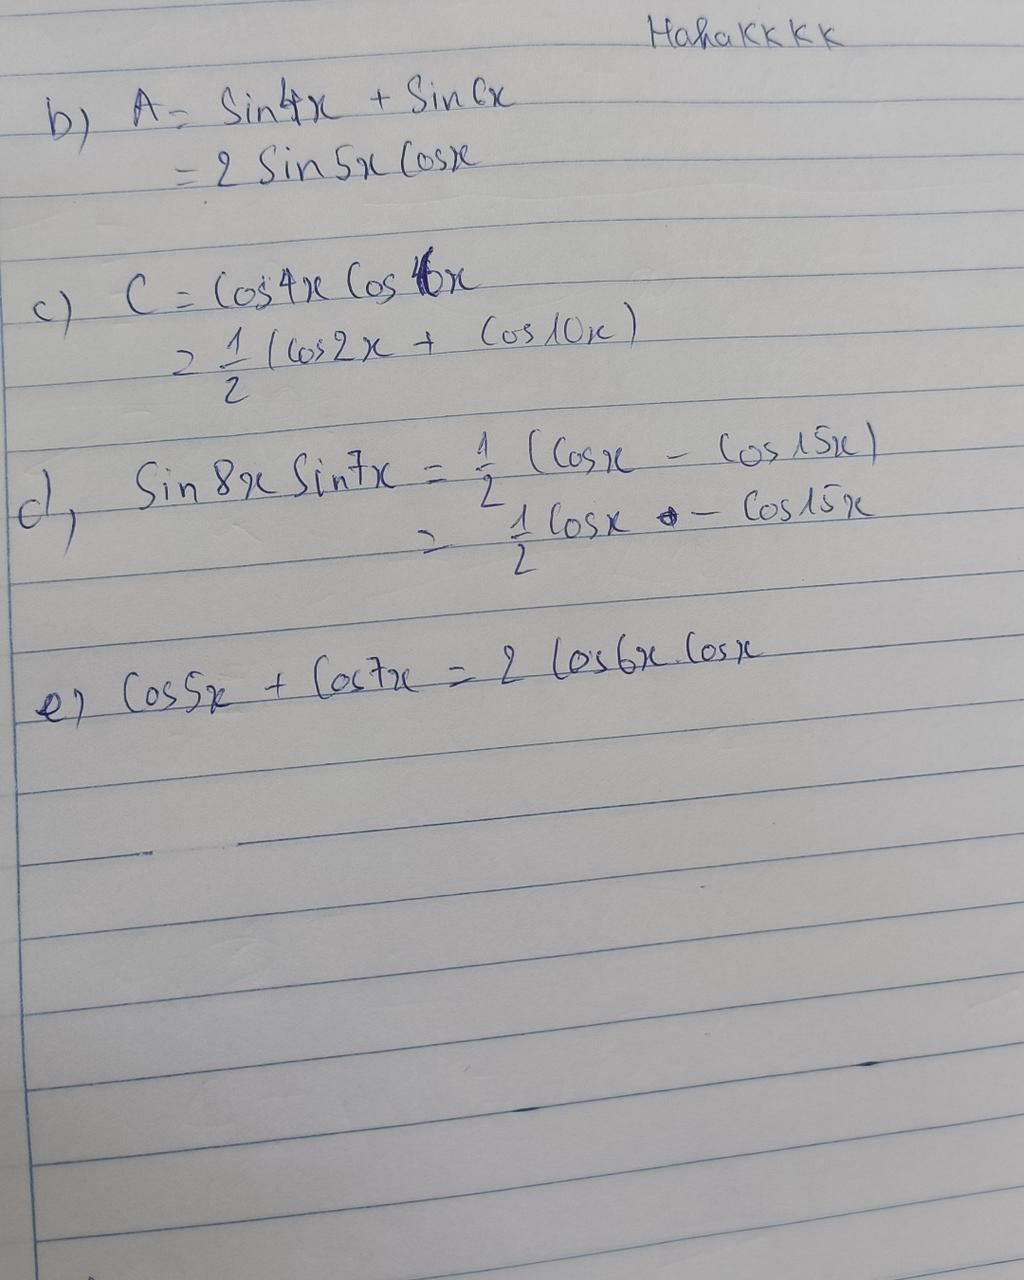 HahaKKKK
b) A = Sin4x + Sin6x
= 2 Sin5x Cosx
c) C = Cos4x Cos6x
= 1/2 (Cos2x + Cos10x)
d, Sin8x Sin7x = 1/2 (Cosx - Cos15x)
= 1/2 Cosx - Cos15x
e) Cos5x + Cos7x = 2 Cos6x.Cosx